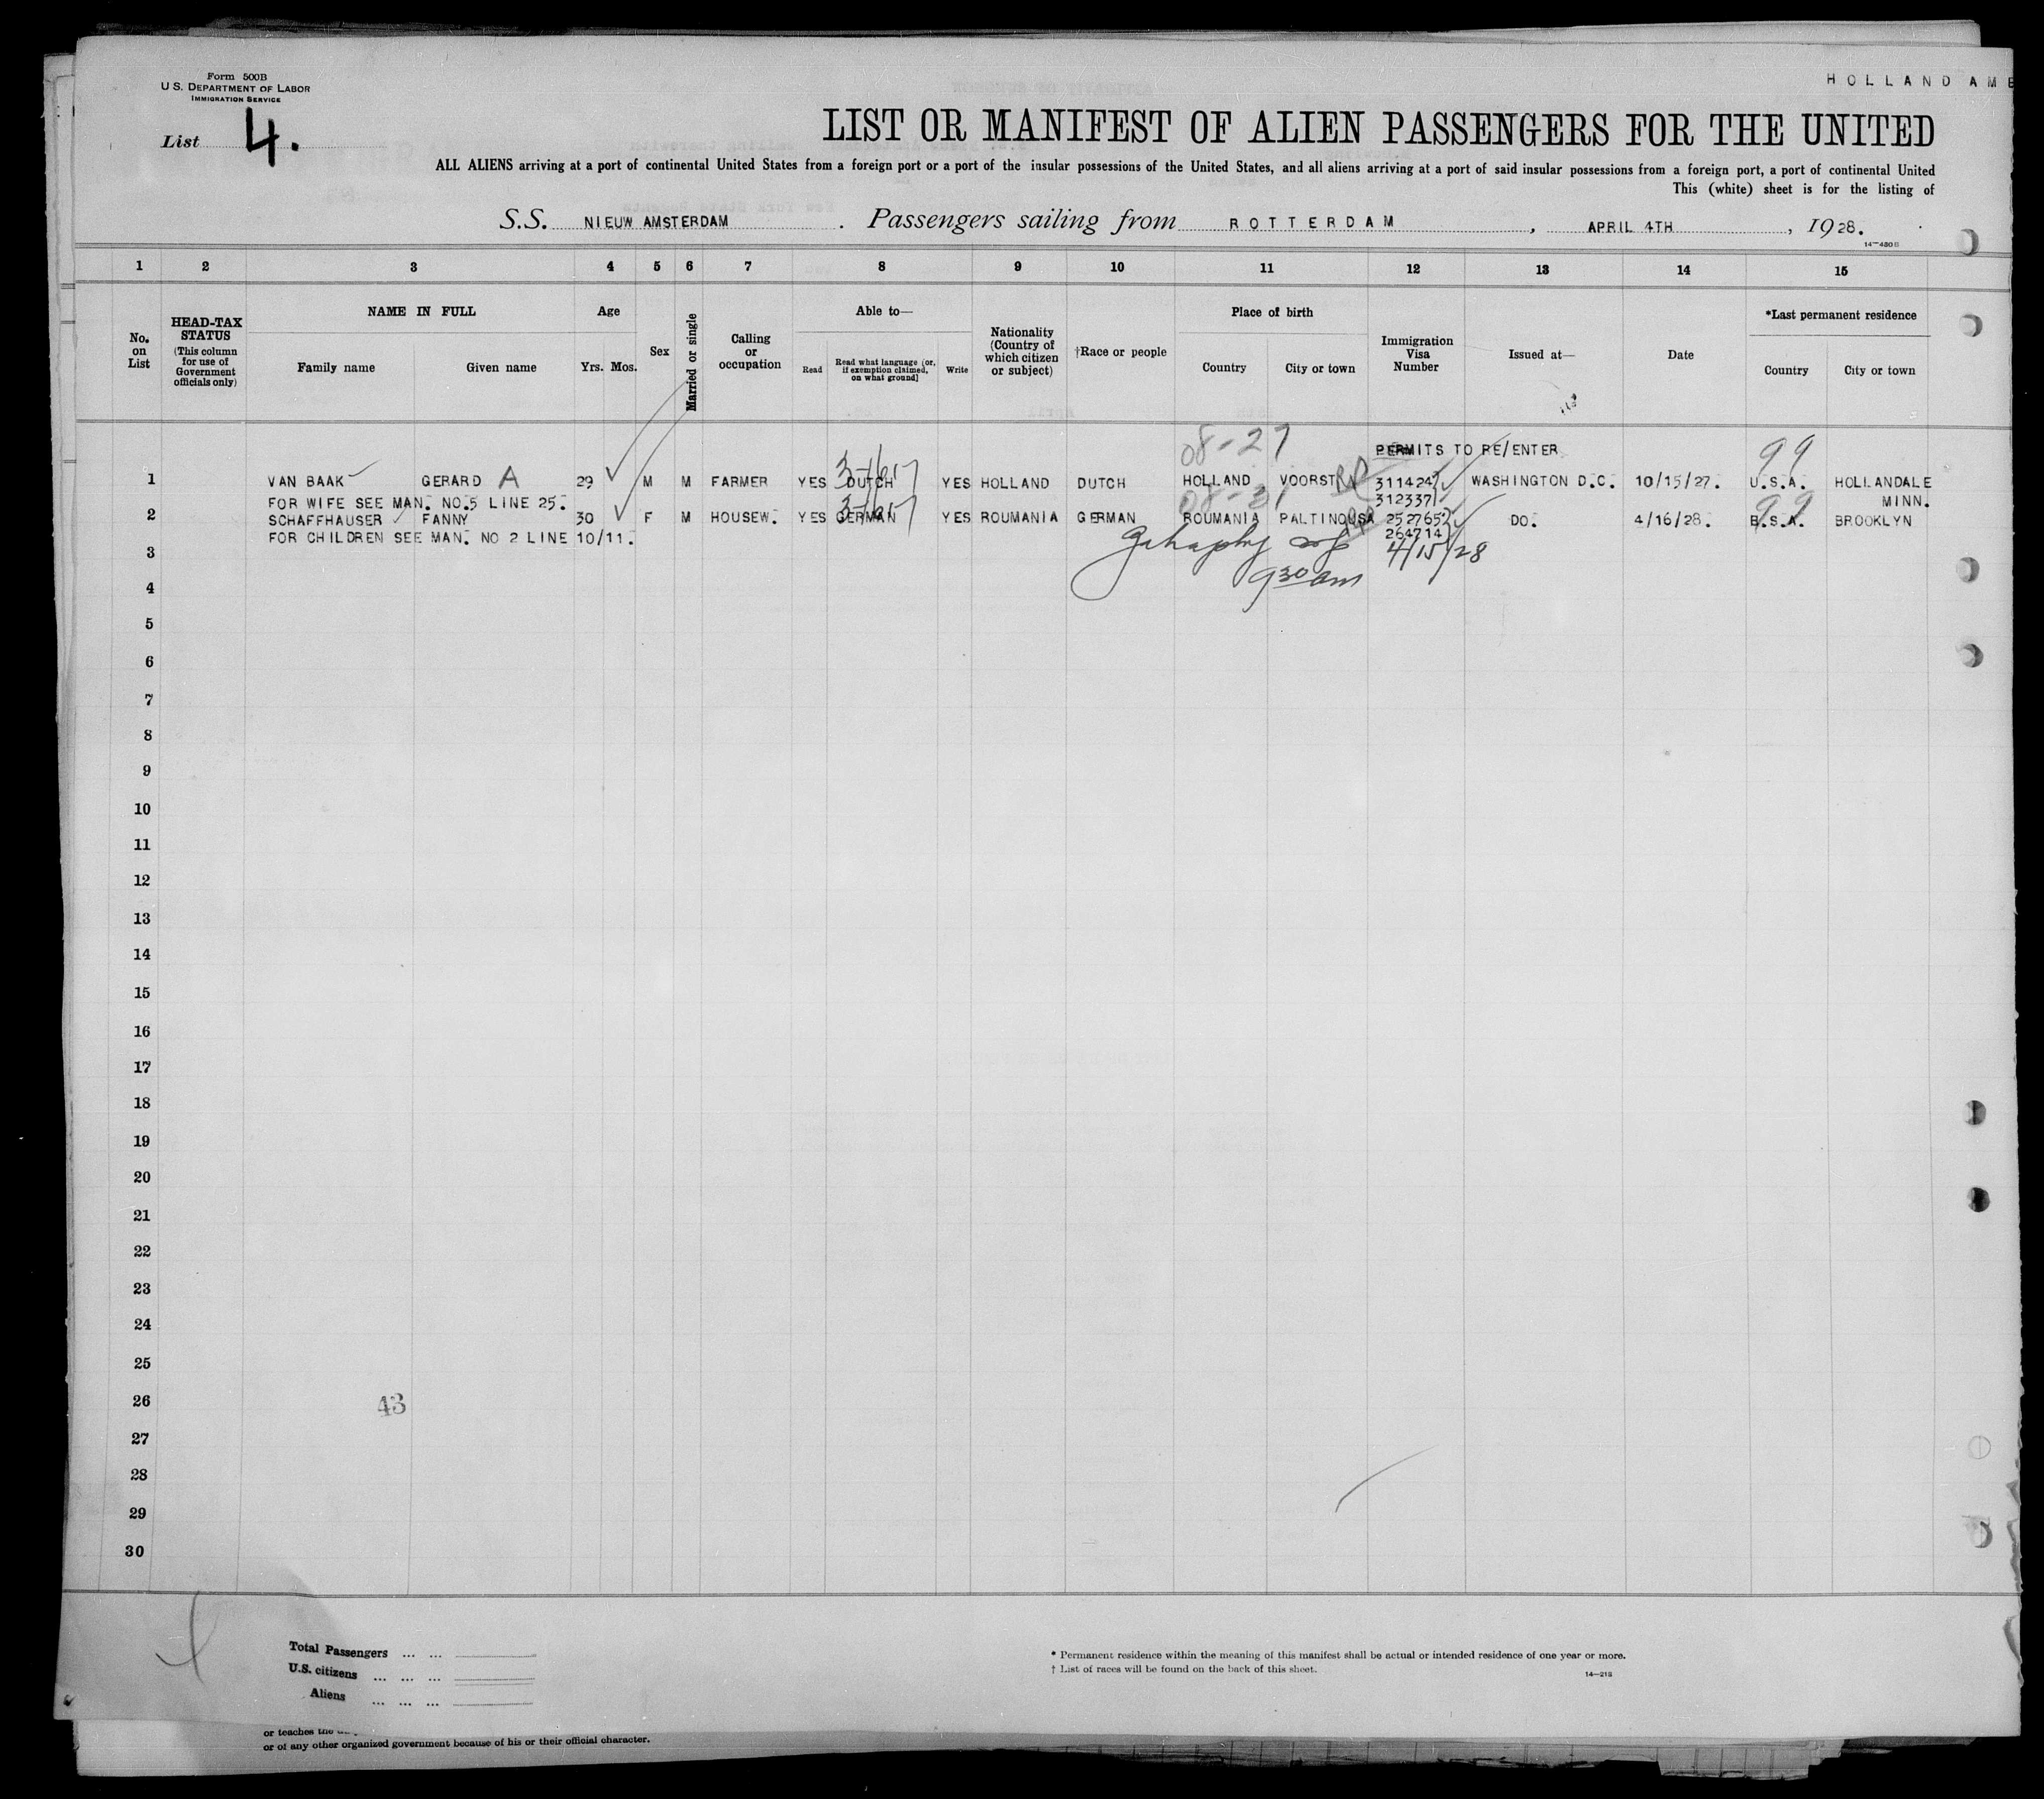 Form 500B
U.S. DEPARTMENT OF LABOR
IMMIGRATION SERVICE
HOLLAND AME
List 4.
LIST OR MANIFEST OF ALIEN PASSENGERS FOR THE UNITED
ALL ALIENS arriving at a port of continental United States from a foreign port or a port of the insular possessions of the United States, and all aliens arriving at a port of said insular possessions from a foreign port, a port of continental United
This (white) sheet is for the listing of
S.S. NIEUW AMSTERDAM. Passengers sailing from ROTTERDAM, APRIL 4TH, 1928.
14—480B
1 2 3 4 5 6 7 8 9 10 11 12 13 14 15
No. on List
HEAD-TAX STATUS (This column for use of Government officials only)
NAME IN FULL
Family name Given name
Age
Yrs. Mos.
Sex
Married or single
Calling or occupation
Able to—
Read
Read what language [or, if exemption claimed, on what ground]
Write
Nationality (Country of which citizen or subject)
†Race or people
Place of birth
Country City or town
Immigration Visa Number
Issued at—
Date
*Last permanent residence
Country City or town
08-27 PERMITS TO RE/ENTER 99
1 VAN BAAK GERARD A 29 M M FARMER YES DUTCH YES HOLLAND DUTCH HOLLAND VOORST 311424 WASHINGTON D.C. 10/15/27. U.S.A. HOLLANDALE
FOR WIFE SEE MAN. NO.5 LINE 25. 312337 MINN.
2 SCHAFFHAUSER FANNY 30 F M HOUSEW. YES GERMAN YES ROUMANIA GERMAN ROUMANIA PALTINOUSA 252765 DO. 4/16/28. B.S.A. BROOKLYN
FOR CHILDREN SEE MAN. NO 2 LINE 10/11. 264714
4/15/28
930 am
3
4
5
6
7
8
9
10
11
12
13
14
15
16
17
18
19
20
21
22
23
24
25
26 43
27
28
29
30
Total Passengers ... ...
U.S. citizens ... ... ...
Aliens ... ... ...
* Permanent residence within the meaning of this manifest shall be actual or intended residence of one year or more.
† List of races will be found on the back of this sheet.
14—218
or teaches the
or of any other organized government because of his or their official character.